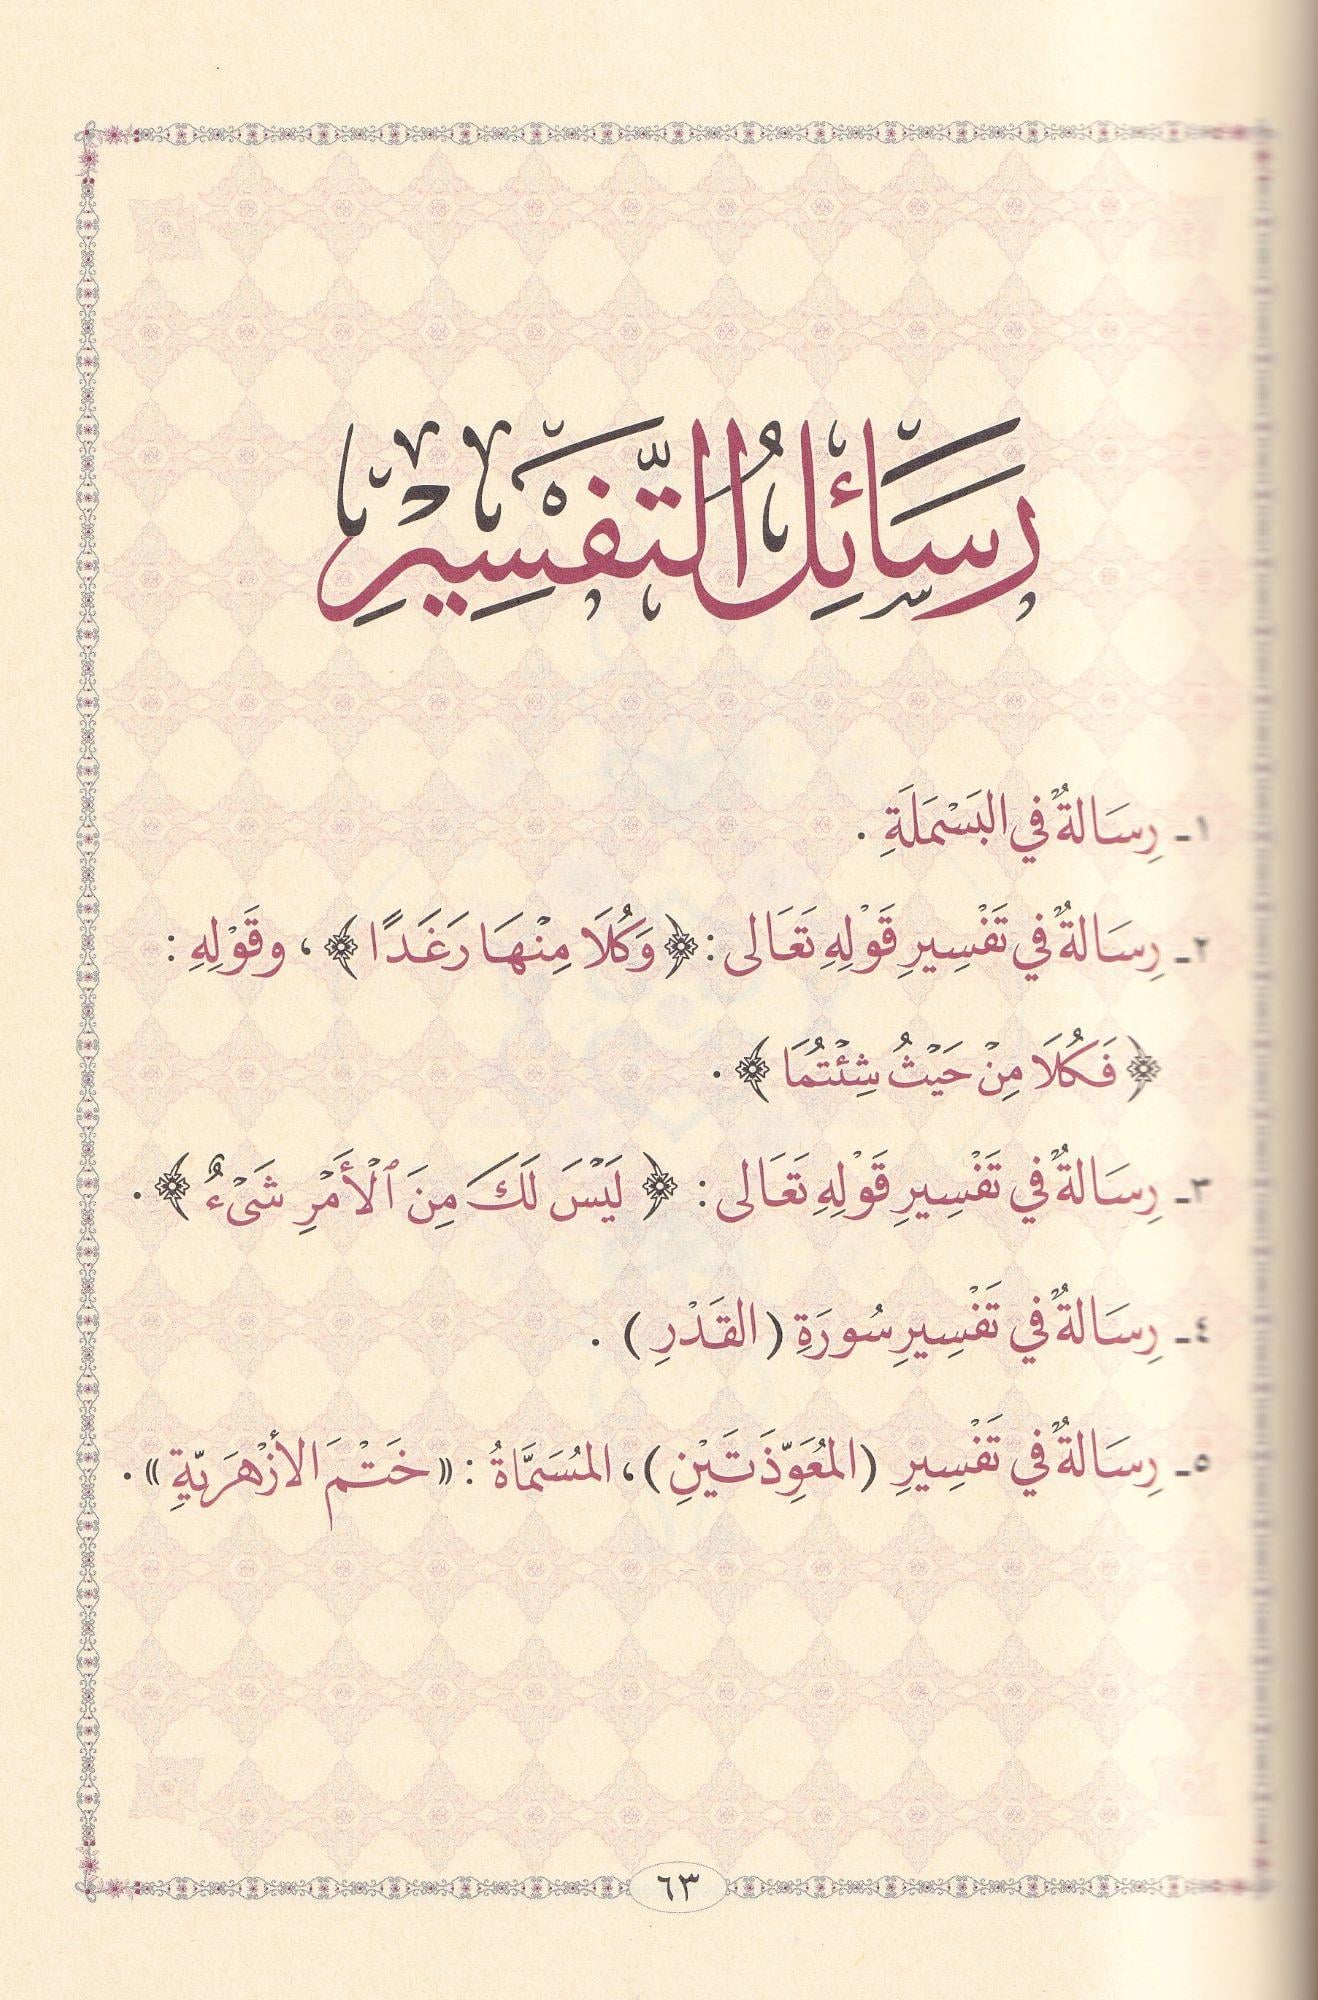 رَسَائِلُ التَّفْسِيرِ
١ـ رِسَالةٌ في البَسْمَلَةِ .
٢ـ رِسَالةٌ في تَفْسِيرِ قَوْلِهِ تَعَالى : ﴿ وَكُلَا مِنْهَا رَغَدًا ﴾ ، وقَوْلِهِ :
﴿ فَكُلَا مِنْ حَيْثُ شِئْتُمَا ﴾ .
٣ـ رِسَالةٌ في تَفْسِيرِ قَوْلِهِ تَعَالى : ﴿ لَيْسَ لَكَ مِنَ ٱلْأَمْرِ شَىْءٌ ﴾ .
٤ـ رِسَالةٌ في تَفْسِيرِ سُورَةِ ( القَدْرِ ) .
٥ـ رِسَالةٌ في تَفْسِيرِ ( المُعَوِّذَتَيْنِ ) ، المُسَمَّاةُ : « خَتْمَ الأَزْهَرِيَّةِ » .
٦٣